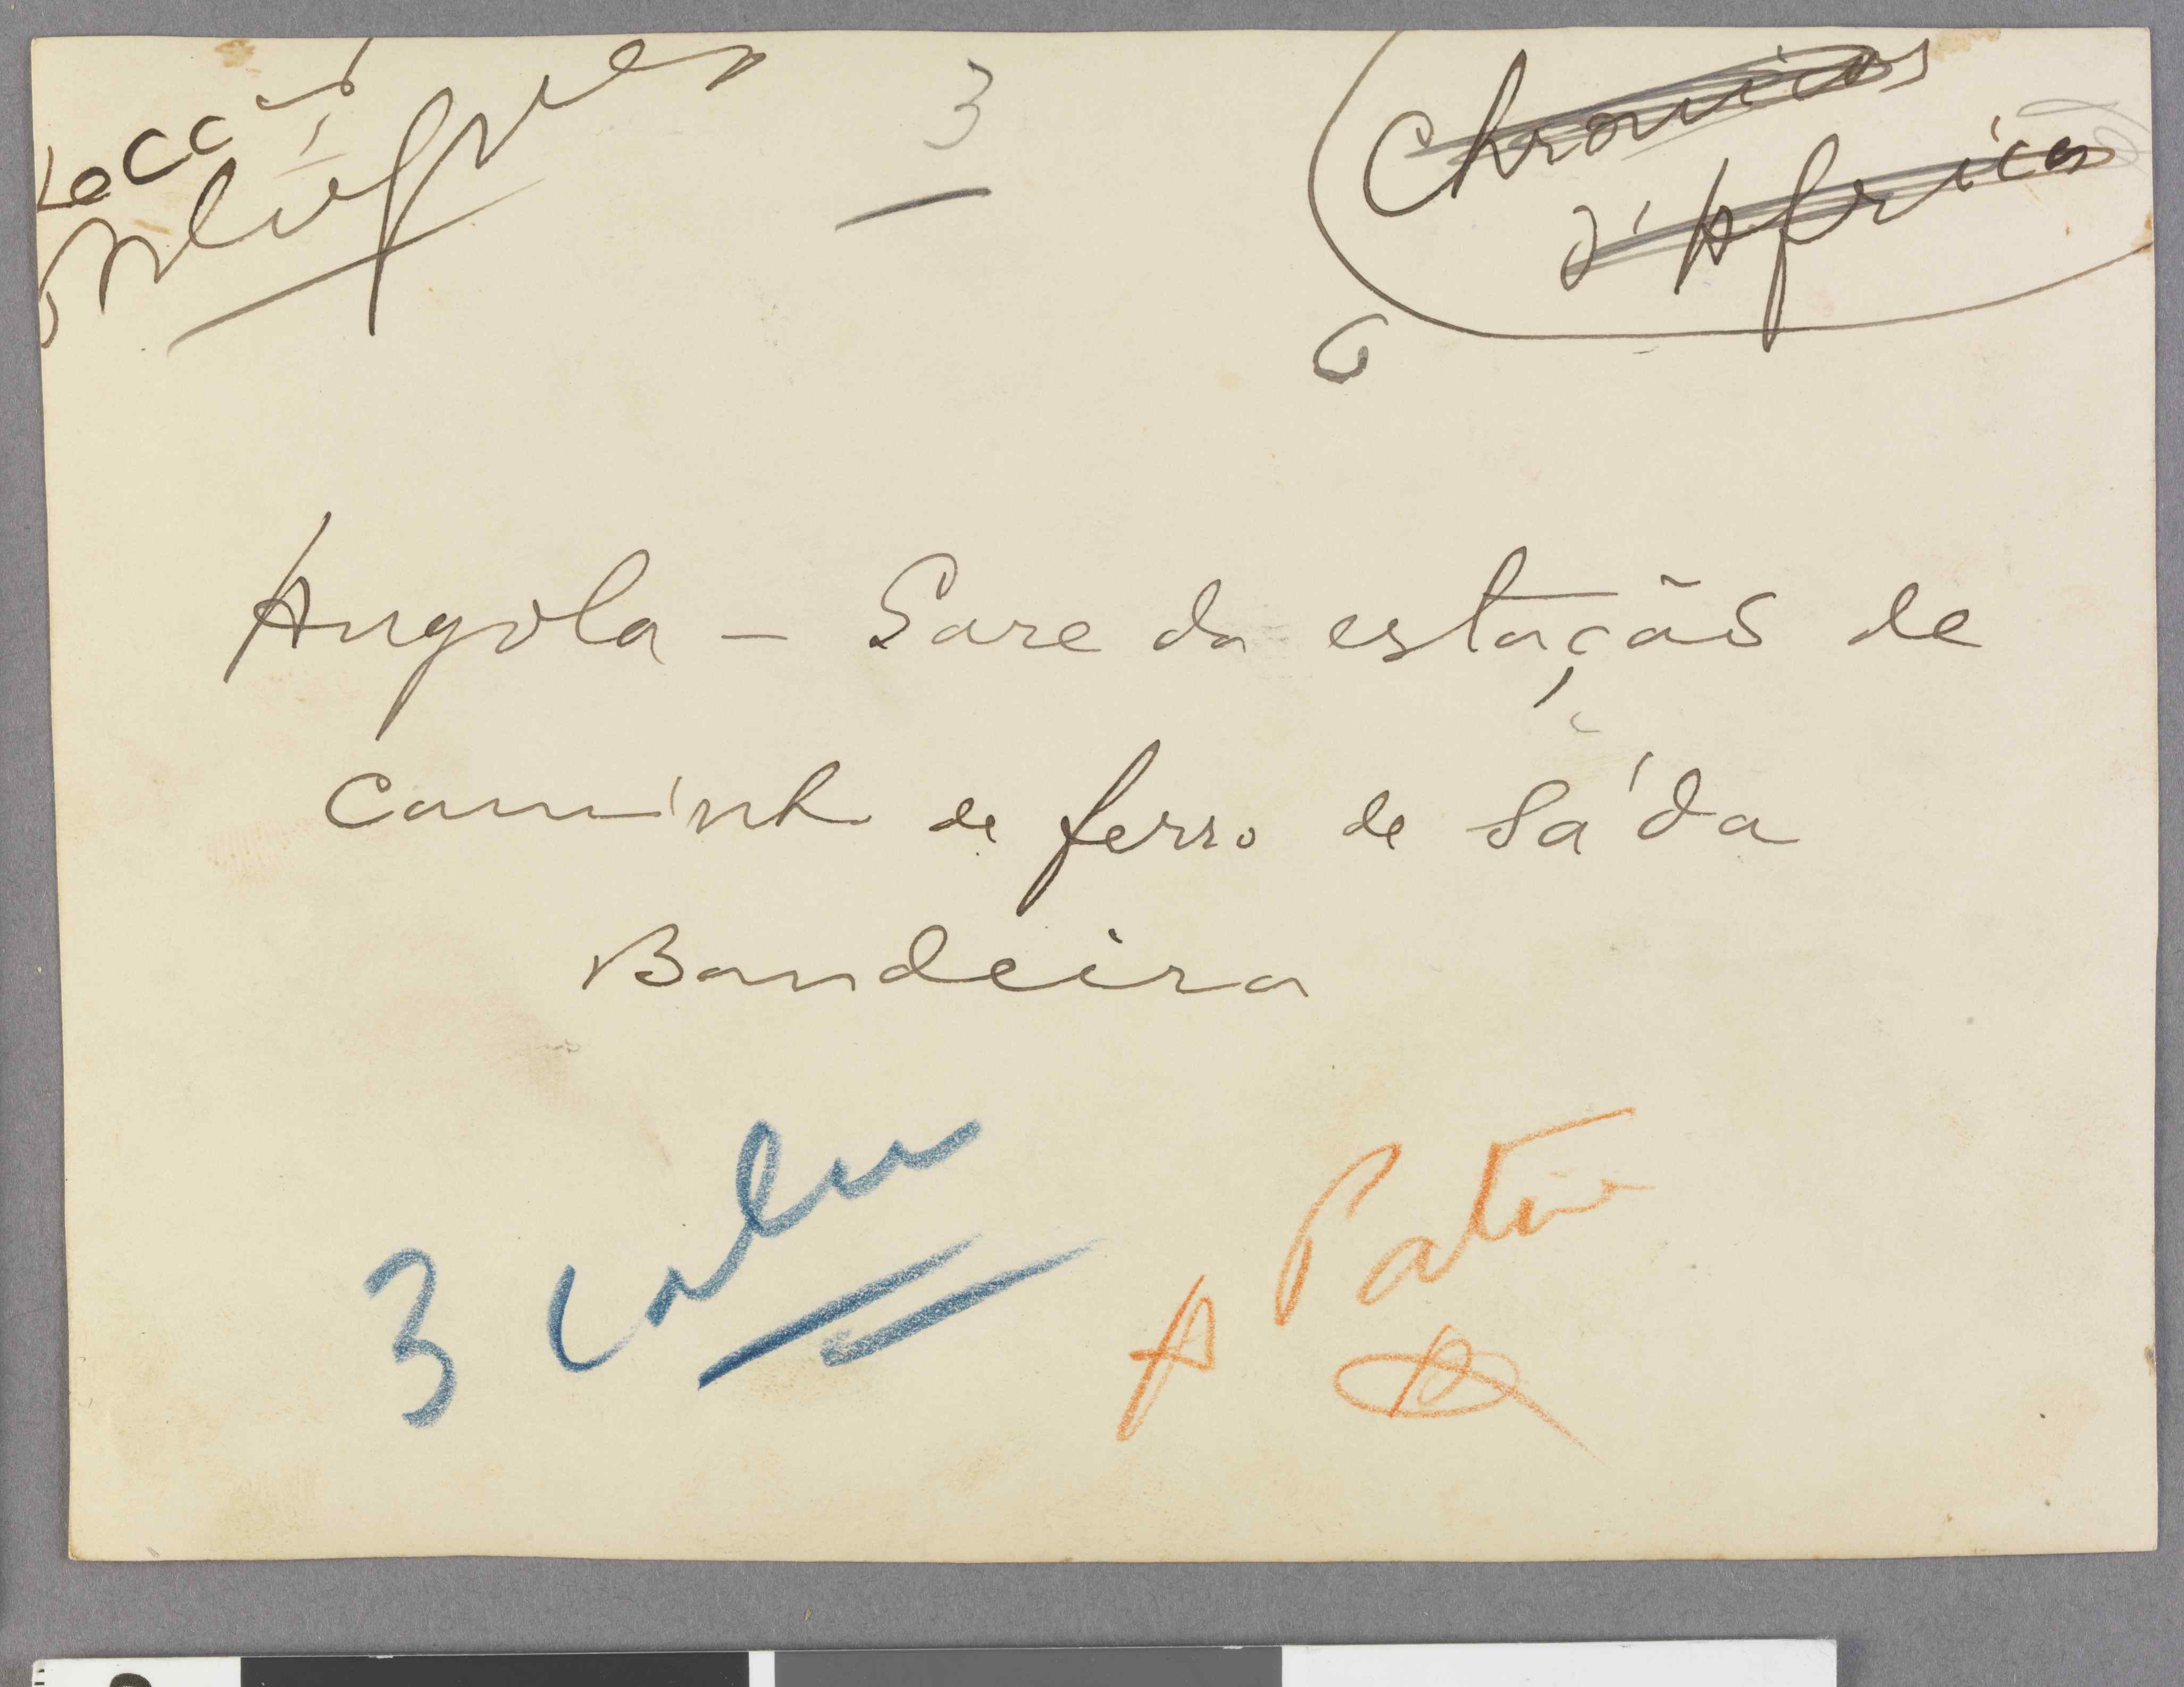 3
Chronicas
d'Africa
6
Angola – Gare da estação de
Caminho de ferro de Sá da
Bandeira
3 colu